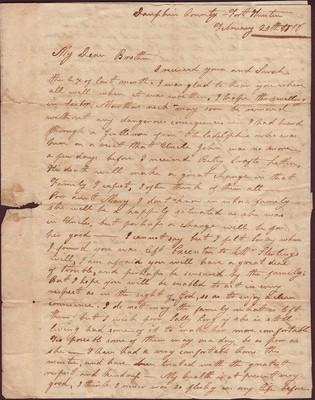 Dauphin County - Fort Hunter
February 20th
My Dear Brother
I received yours and Sarah
the of last month. I was glad to hear you where
all well when it was written, I hope the swelling
in Sister neck may soon be removed
without any dangerous consequences I had heard
through a gentleman from Philadelphia who was
on a visit that Uncle John was no more
a few days before I received letter,
His death will make a great change in that
Family I expect, I often think of them all
Poor Aunt I don't know in whose family
she will be so happily situated as she was
in Uncles, but perhaps a change will be for
her good I cannot say but I felt sorry when
I found you was left Executor to
will, I am afraid you will have a great deal
of trouble, and perhaps be censured by the family,
But I hope you will be enabled to act in every
respect as in the sight of God, so as to enjoy a clear
conscience. I do not envy the family what he left
them, but I wish poor Sally if she is still
living had some of it to make her more comfortable
tis possible some of them may one day, be as poor as
she - I have had a very comfortable home this
winter, and have been treated with the greatest
respect and kindness - My health is at present very
good, I think I never was so fleshy in my life before